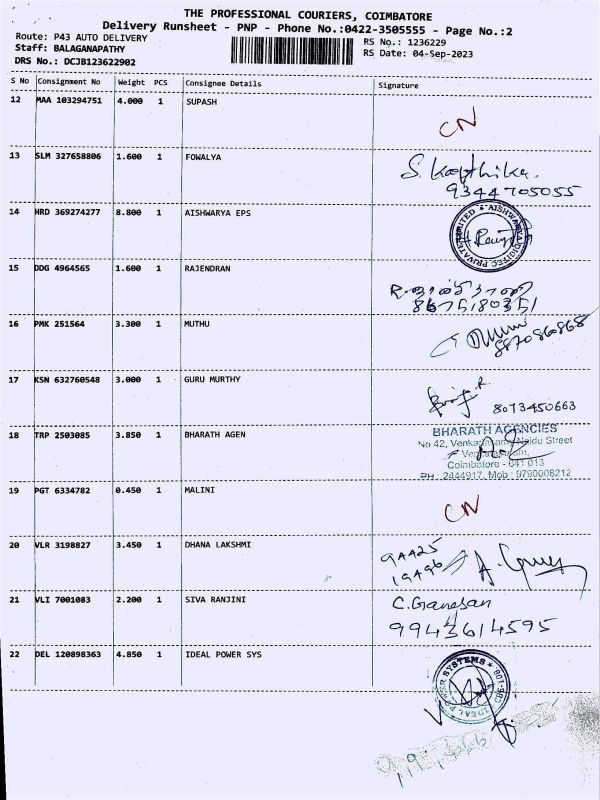 THE PROFESSIONAL COURIERS, COIMBATORE
Delivery Runsheet - PNP - Phone No.:0422-3505555 - Page No.:2
Route: P43 AUTO DELIVERY
RS No.: 1236229
Staff: BALAGANAPATHY
RS Date: 04-Sep-2023
DRS No.: DCJB123622902
S No Consignment No Weight PCS Consignee Details Signature
12 MAA 103294751 4.000 1 SUPASH
CN
13 SLM 327658806 1.600 1 FOWALYA
S. Karthika.
9344705055
14 HRD 369274277 8.800 1 AISHWARYA EPS
15 DDG 4964565 1.600 1 RAJENDRAN
8675180351
16 PMK 251564 3.300 1 MUTHU
8870860868
17 KSN 632760548 3.000 1 GURU MURTHY
8073450663
18 TRP 2503085 3.850 1 BHARATH AGEN
BHARATH AGENCIES
No 42, Venkatasamy Naidu Street
Coimbatore - 641 013
PH : 2444917, Mob : 9790008212
19 PGT 6334782 0.450 1 MALINI
CN
20 VLR 3198827 3.450 1 DHANA LAKSHMI
94425
19496
21 VLI 7001083 2.200 1 SIVA RANJINI
C. Ganesan
9943614595
22 DEL 120898363 4.850 1 IDEAL POWER SYS
IDEAL POWER SYSTEMS